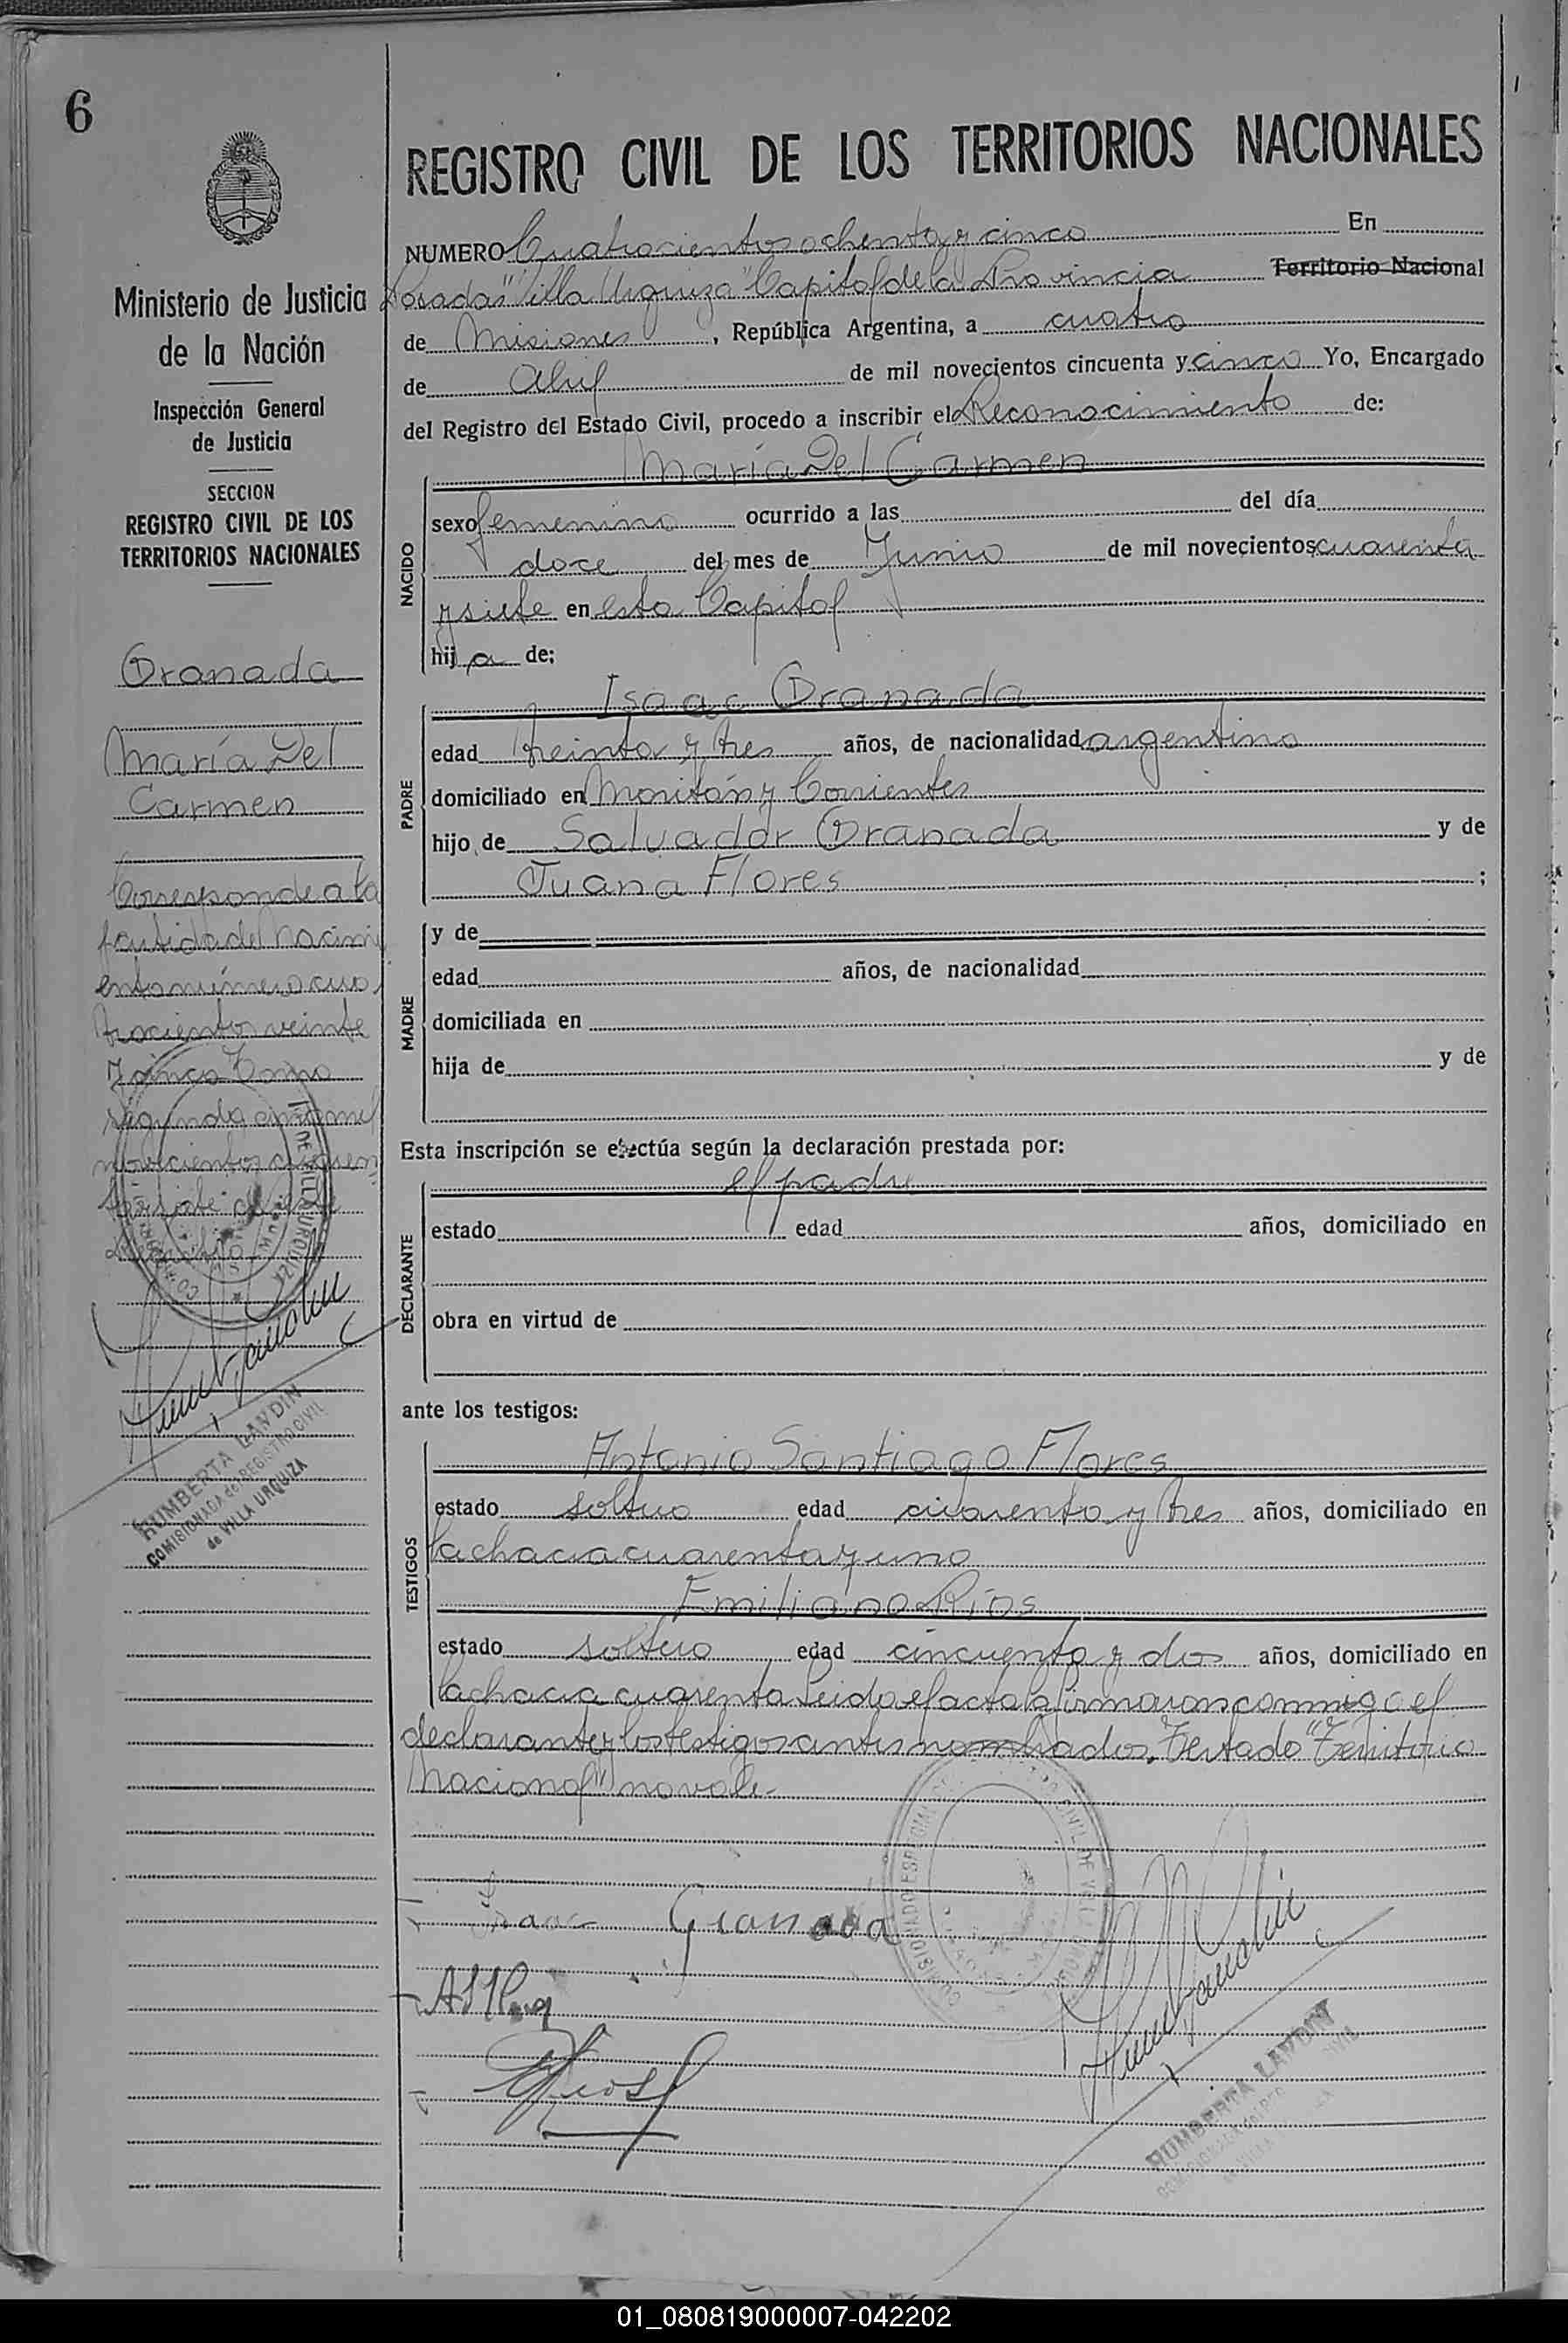 6
REGISTRO CIVIL DE LOS TERRITORIOS NACIONALES
NUMERO Cuatrocientos ochenta y cinco En
Posadas "Villa Urquiza" Capital de la Provincia Territorio Nacional
de Misiones, República Argentina, a cuatro
de Abril de mil novecientos cincuenta y cinco Yo, Encargado
del Registro del Estado Civil, procedo a inscribir el Reconocimiento de:
María Del Carmen
NACIDO
sexo femenino ocurrido a las del día
doce del mes de Junio de mil novecientos cuarenta
y siete en esta Capital
hija de:
Isaac Granada
PADRE
edad treinta y tres años, de nacionalidad argentino
domiciliado en y Corrientes
hijo de Salvador Granada y de
Juana Flores ;
MADRE
y de
edad años, de nacionalidad
domiciliada en
hija de y de
Esta inscripción se efectúa según la declaración prestada por:
el padre
DECLARANTE
estado edad años, domiciliado en
obra en virtud de
ante los testigos:
TESTIGOS
Antonio Santiago Flores
estado soltero edad cuarenta y tres años, domiciliado en
la chacra cuarenta y uno
Emiliano Ríos
estado soltero edad cincuenta y dos años, domiciliado en
la chacra cuarenta Leida el acta la firmaron conmigo el
declarante y los testigos antes nombrados. Testado "Territorio
Nacional" no vale.-
Isaac Granada
HUMBERTA LANDIN
Ministerio de Justicia
de la Nación
Inspección General
de Justicia
SECCION
REGISTRO CIVIL DE LOS
TERRITORIOS NACIONALES
Granada
María Del
Carmen
Corresponde a la
partida del Nacimi
ento número cua
trociento veinte
y cinco Tomo
segundo
novecientos
HUMBERTA LANDIN
COMISIONADA de REGISTRO CIVIL
de VILLA URQUIZA
01_080819000007-042202